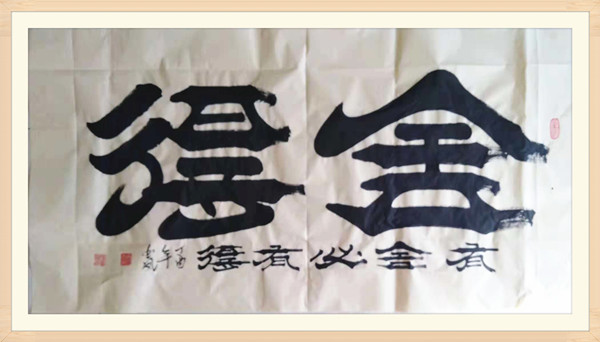 舍得
有舍必有得